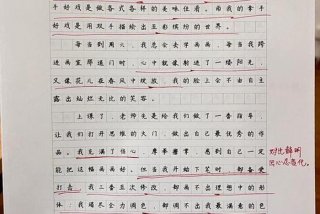 手好戏是做各式各样的美味佳肴，而我的拿手
好戏是用双手描绘出五彩缤纷的世界。
每当到周六，我总会去学画画，每当我跨
进画室那道门时，心中就像射进了一缕阳光，
又像花儿在春风中绽放，我的脸上会不由自主
露出灿烂无比的笑容。
上课了，老师先是给我们做了一番指导，
让我们打开思维的大门，做出自己最优秀的作
品，我充满了信心，摩拳擦掌，感到自己一定
能把这幅画画好。但当我开始下笔时，却备受
打击，我三番五次修改，却画不出理想中的形
体；我竭尽全力调色，却调不出我最满意的色
对比鲜明